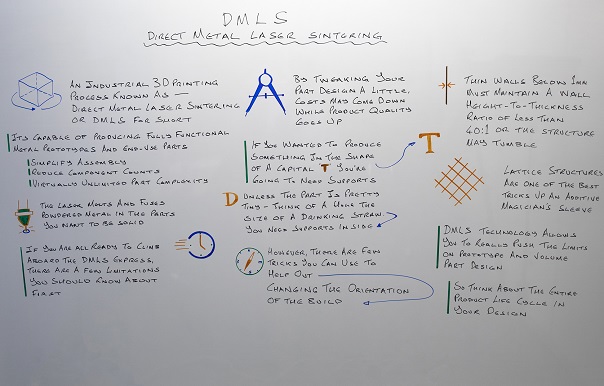 DMLS
DIRECT METAL LASER SINTERING
AN INDUSTRIAL 3D PRINTING
PROCESS KNOWN AS —
DIRECT METAL LASER SINTERING
OR DMLS FOR SHORT
ITS CAPABLE OF PRODUCING FULLY FUNCTIONAL
METAL PROTOTYPES AND END-USE PARTS
SIMPLIFY ASSEMBLY
REDUCE COMPONENT COUNTS
VIRTUALLY UNLIMITED PART COMPLEXITY
THE LASER MELTS AND FUSES
POWDERED METAL IN THE PARTS
YOU WANT TO BE SOLID
IF YOU ARE ALL READY TO CLIMB
ABOARD THE DMLS EXPRESS,
THERE ARE A FEW LIMITATIONS
YOU SHOULD KNOW ABOUT
FIRST
BY TWEAKING YOUR
PART DESIGN A LITTLE,
COSTS MAY COME DOWN
WHILE PRODUCT QUALITY
GOES UP
IF YOU WANTED TO PRODUCE
SOMETHING IN THE SHAPE
OF A CAPITAL "T" YOU'RE
GOING TO NEED SUPPORTS
T
D UNLESS THE PART IS PRETTY
TINY - THINK OF A HOLE THE
SIZE OF A DRINKING STRAW.
YOU NEED SUPPORTS INSIDE
HOWEVER, THERE ARE FEW
TRICKS YOU CAN USE TO
HELP OUT
CHANGING THE ORIENTATION
OF THE BUILD
THIN WALLS BELOW 1MM
MUST MAINTAIN A WALL
HEIGHT-TO-THICKNESS
RATIO OF LESS THAN
40:1 OR THE STRUCTURE
MAY TUMBLE
LATTICE STRUCTURES
ARE ONE OF THE BEST
TRICKS UP AN ADDITIVE
MAGICIAN'S SLEEVE
DMLS TECHNOLOGY ALLOWS
YOU TO REALLY PUSH THE LIMITS
ON PROTOTYPE AND VOLUME
PART DESIGN
SO THINK ABOUT THE ENTIRE
PRODUCT LIFE CYCLE IN
YOUR DESIGN